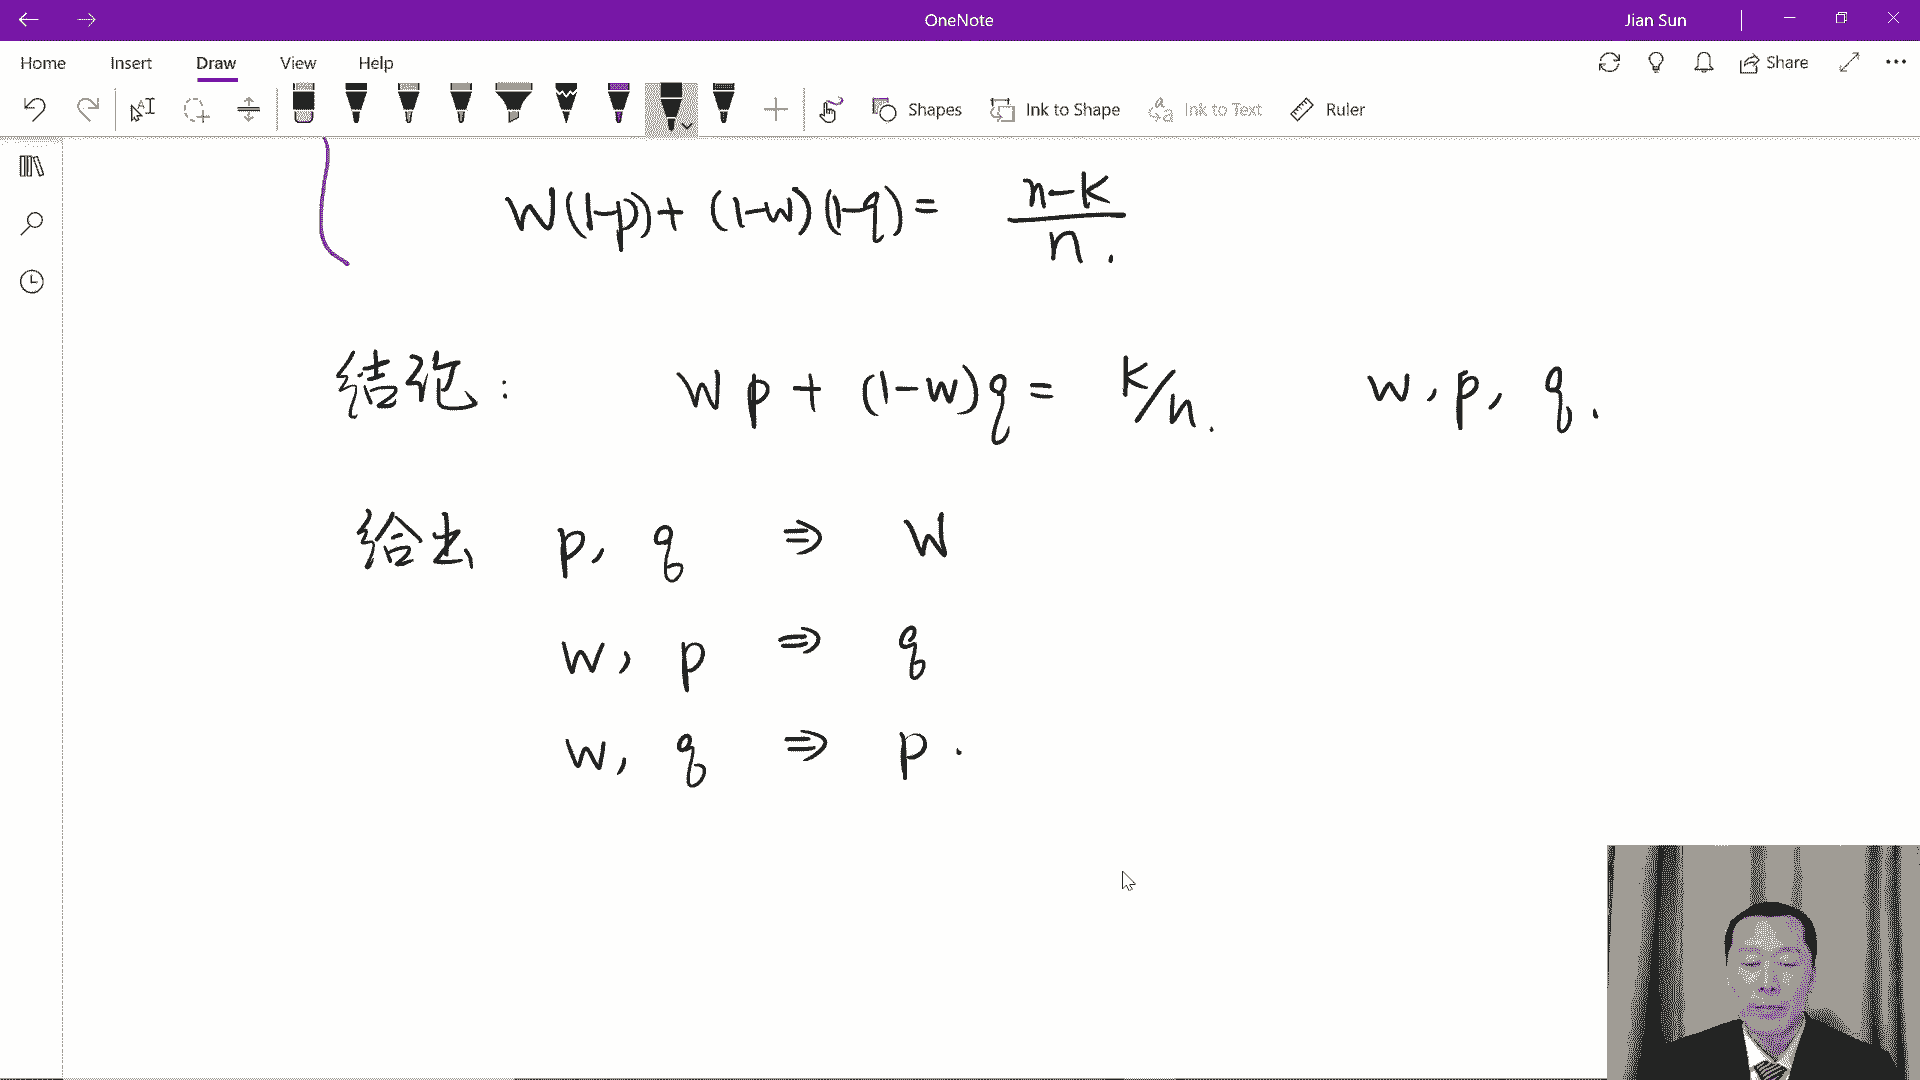 OneNote
Jian Sun
Home Insert Draw View Help
Share
Shapes Ink to Shape Ink to Text Ruler
W(1-p)+(1-w)(1-q)= n-k/n.
结论: Wp+(1-w)q= k/n. w,p,q.
给出 p, q ⇒ W
w, p ⇒ q
w, q ⇒ p.